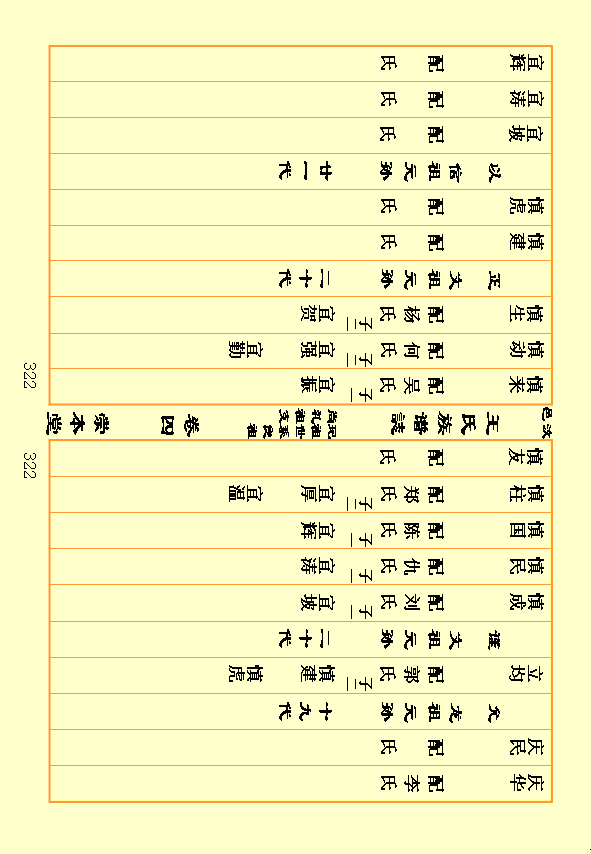 庆华 配李氏
庆民 配 氏
允友祖元孙 十九代
立均 配郭氏 子二 慎建 慎虎
谨文祖元孙 二十代
慎成 配刘氏 子一 宜坡
慎民 配仇氏 子一 宜涛
慎国 配陈氏 子一 宜辉
慎柱 配郑氏 子二 宜厚 宜溫
慎友 配 氏
322
汶邑 王氏族譜誌 卷四 崇本堂
322
慎来 配吴氏 子一 宜振
慎动 配何氏 子二 宜强 宜勤
慎生 配杨氏 子一 宜贺
正文祖元孙 二十代
慎建 配 氏
慎虎 配 氏
以信祖元孙 廿一代
宜坡 配 氏
宜涛 配 氏
宜辉 配 氏